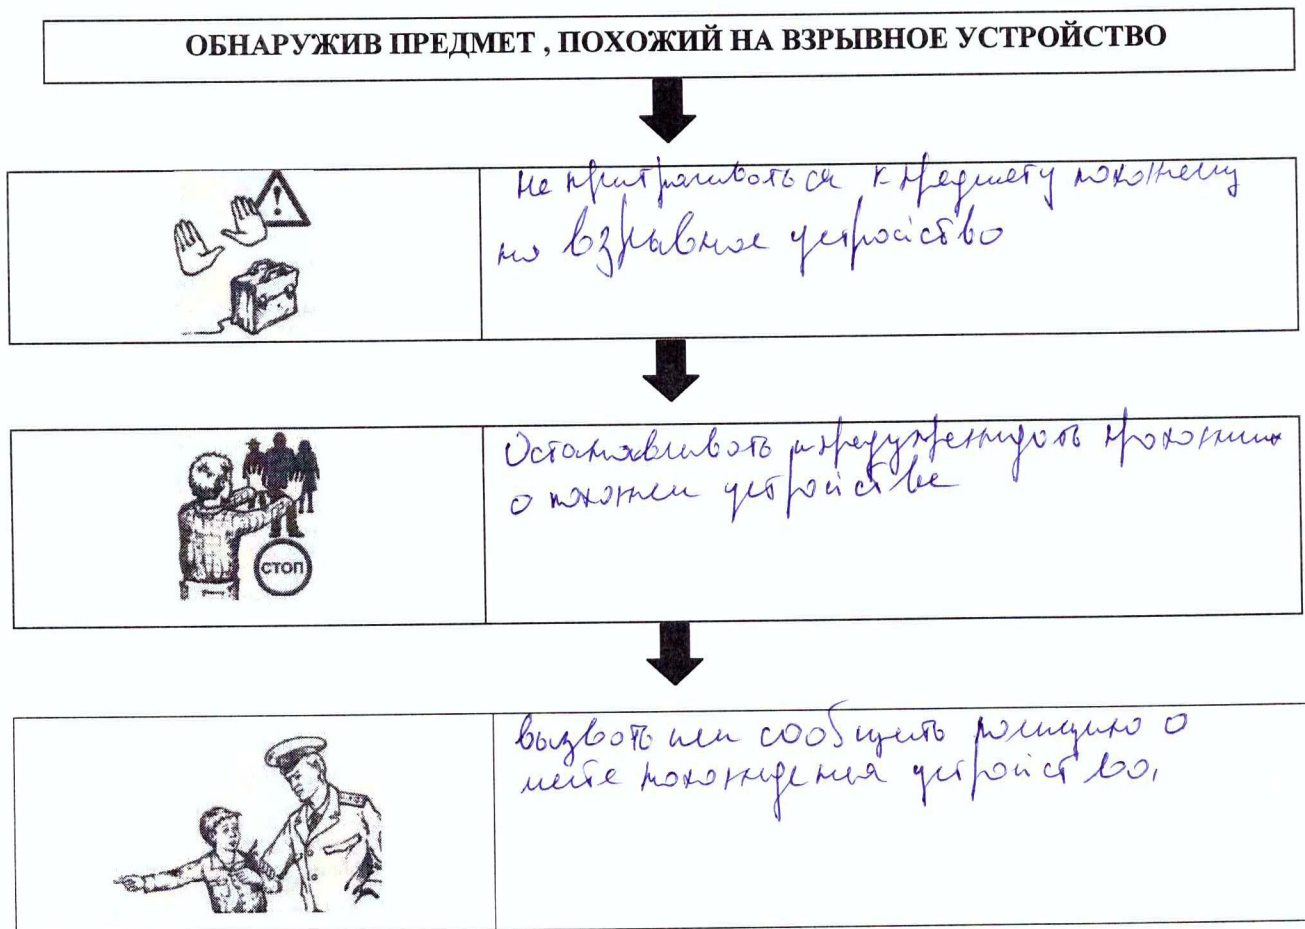 ОБНАРУЖИВ ПРЕДМЕТ , ПОХОЖИЙ НА ВЗРЫВНОЕ УСТРОЙСТВО
не притрагиваться к предмету похожему
на взрывное устройство
Останавливать и предупреждать прохожих
о похожем устройстве
СТОП
вызвать или сообщить полицию о
месте нахождения устройства.